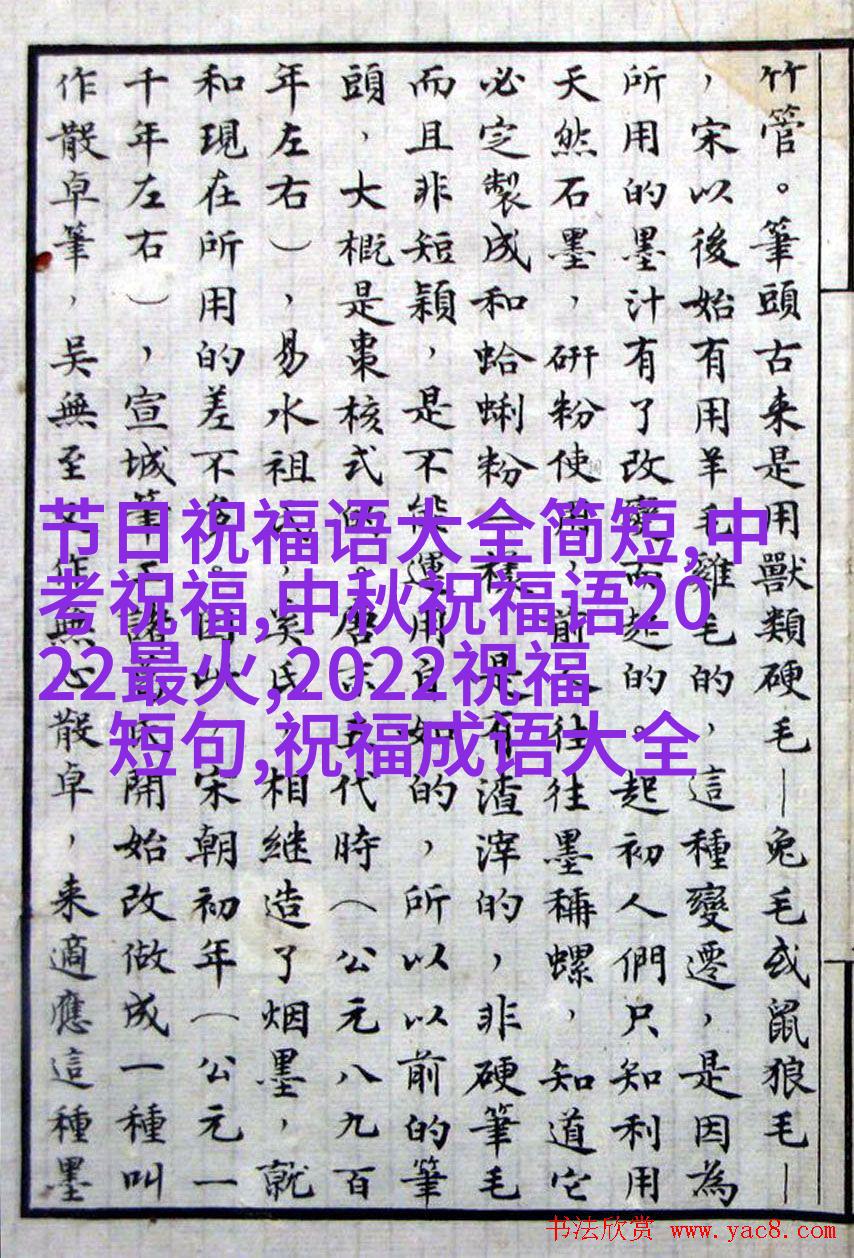 竹管。筆頭古来是用獸類硬毛—兔毛或鼠狼毛—
，宋以後始有用羊毛雞毛的，這種變遷，是因為
所用的墨汁有了改變而起的。起初人們只知利用
天然石墨，研粉使用，前人往往墨稱螺，知道它
必定製成和蛤蜊粉一樣，是有渣滓的，非硬筆毛
而且非短穎，是不能運用自如的，所以以前的筆
頭，大概是棗核式的。唐末五代時（公元八九百
年左右），易水祖氏，奚氏，相継造了烟墨，就
和現在所用的差不多。因此，宋朝初年（公元一
千年左右），宣城筆工諸葛氏開始改做成一種叫
作散卓筆，吳無至又作無心散卓，来適應這種墨
节日祝福语大全简短,中
考祝福,中秋祝福语20
22最火,2022祝福
短句,祝福成语大全
书法欣赏 www.yac8.com